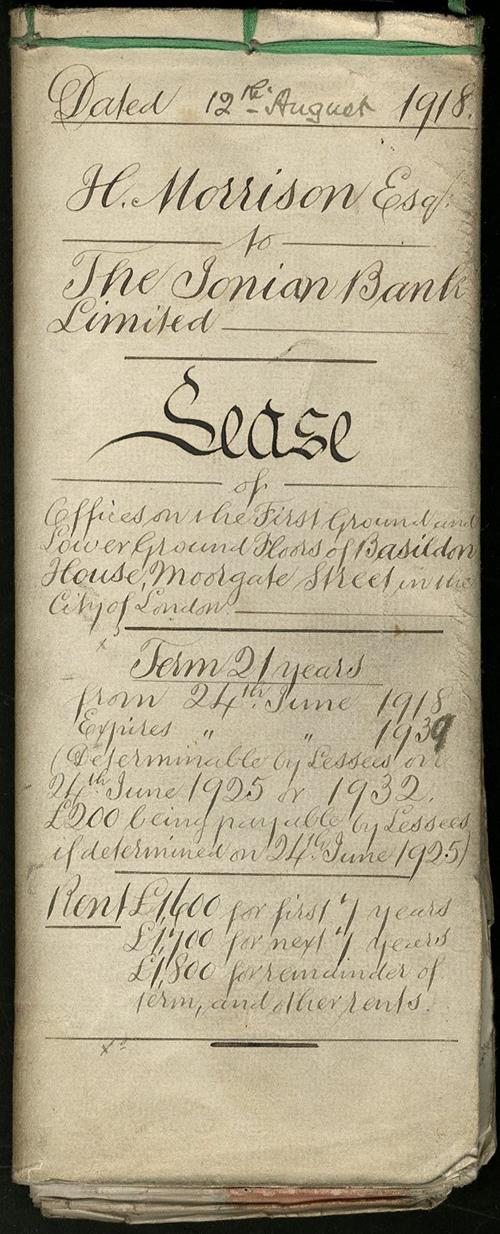 Dated 12th August 1918.
H. Morrison Esqr.
to
The Ionian Bank
Limited
Lease
of
Offices on the First Ground and
Lower Ground Floors of Basildon
House, Moorgate Street in the
City of London.
Term 21 years
from 24th June 1918
Expires " " 1939
(Determinable by Lessees on
24th June 1925 or 1932.
£200 being payable by Lessees
if determined on 24th June 1925)
Rent £1,600 for first 7 years
£1,700 for next 7 years
£1,800 for remainder of
term, and other rents.